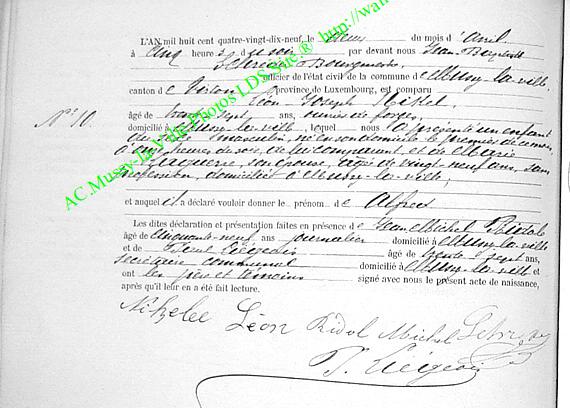 L'AN mil huit cent quatre-vingt-dix-neuf, le deux du mois d'avril
à cinq heures du soir par devant nous Jean Baptiste
Bourgmestre
officier de l'état civil de la commune de Mussy-la-ville,
canton de Virton province de Luxembourg, est comparu
N° 10. Léon Joseph
âgé de trente sept ans,
domicilié à Mussy-la-ville, lequel nous a présenté un enfant
de sexe masculin, né en son domicile le premier de ce mois
à heures du soir, de lui comparant et de Marie
son épouse, âgée de vingt-neuf ans, sans
profession, domiciliée à Mussy-la-ville,
et auquel il a déclaré vouloir donner le prénom de Alfred
Les dites déclaration et présentation faites en présence de Jean Michel
âgé de cinquante-neuf ans journalier domicilié à Mussy-la-ville
et de Liégeois âgé de trente sept ans,
secrétaire communal domicilié à Mussy-la-ville et
ont les père et témoins signé avec nous le présent acte de naissance,
après qu'il leur en a été fait lecture.
Léon Michel
Liégeois
AC.Mussy-la-Ville Photos LDS Site ® http://wan